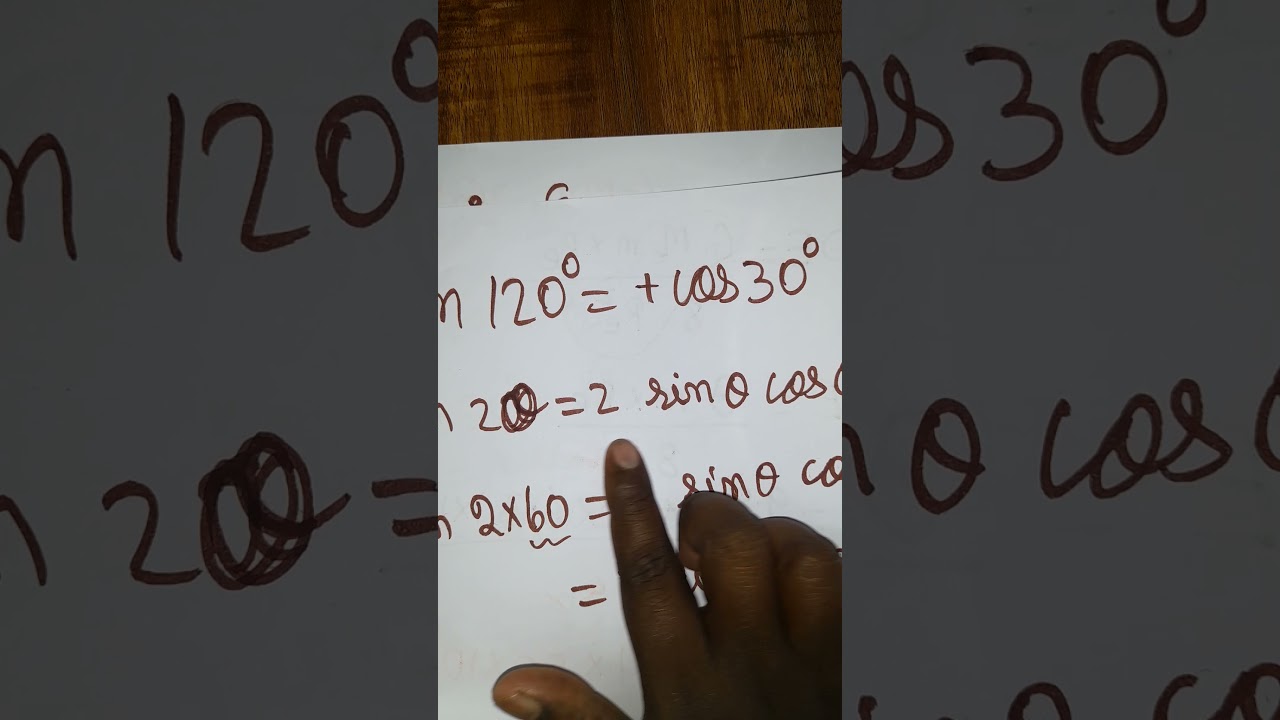 n 120° = + cos 30°
n 2θ = 2 sin θ cos
n 2×60 = sin θ co
=